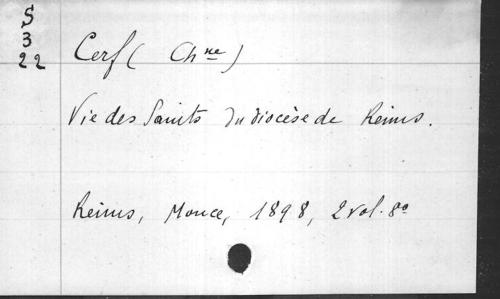 S
3
22
Cerf (Chne)
Vie des Saints du diocèse de Reims.
Reims, Monce, 1898, 2 vol. 8°